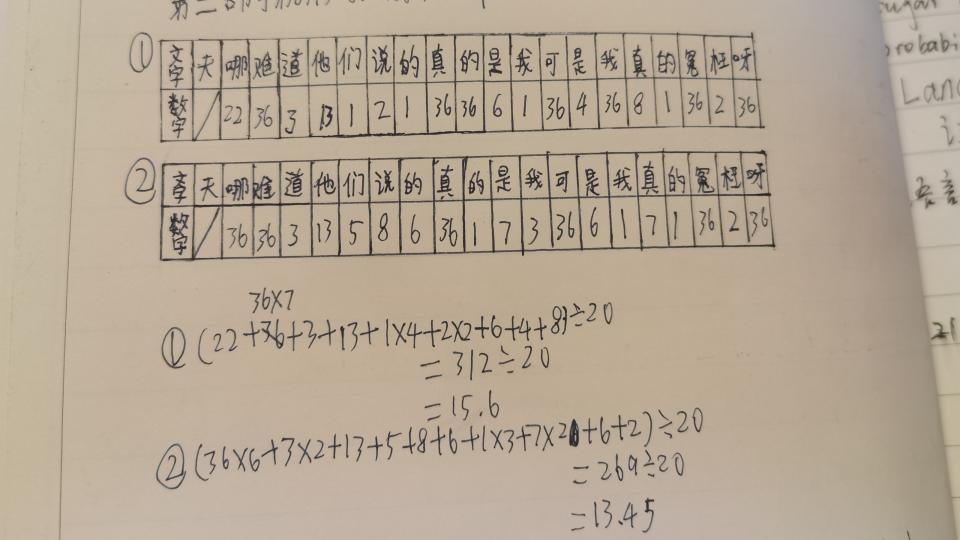 ①
文字 天 哪 难 道 他 们 说 的 真 的 是 我 可 是 我 真 的 冤 枉 呀
数字 / 22 36 3 13 1 2 1 36 36 6 1 36 4 36 8 1 36 2 36
②
文字 天 哪 难 道 他 们 说 的 真 的 是 我 可 是 我 真 的 冤 枉 呀
数字 / 36 36 3 13 5 8 6 36 1 7 3 36 6 1 7 1 36 2 36
36×7
①(22+36+3+13+1×4+2×2+6+4+8)÷20
=312÷20
=15.6
②(36×6+3×2+13+5+8+6+1×3+7×2+6+2)÷20
=269÷20
=13.45
Lang
语言